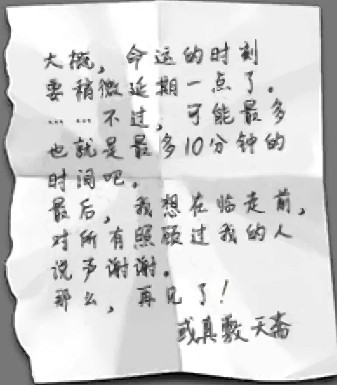 大概，命运的时刻
要稍微延期一点了。
……不过，可能最多
也就是最多10分钟的
时间吧。
最后，我想在临走前，
对所有照顾过我的人
说声谢谢。
那么，再见了！
或真敷 天斋